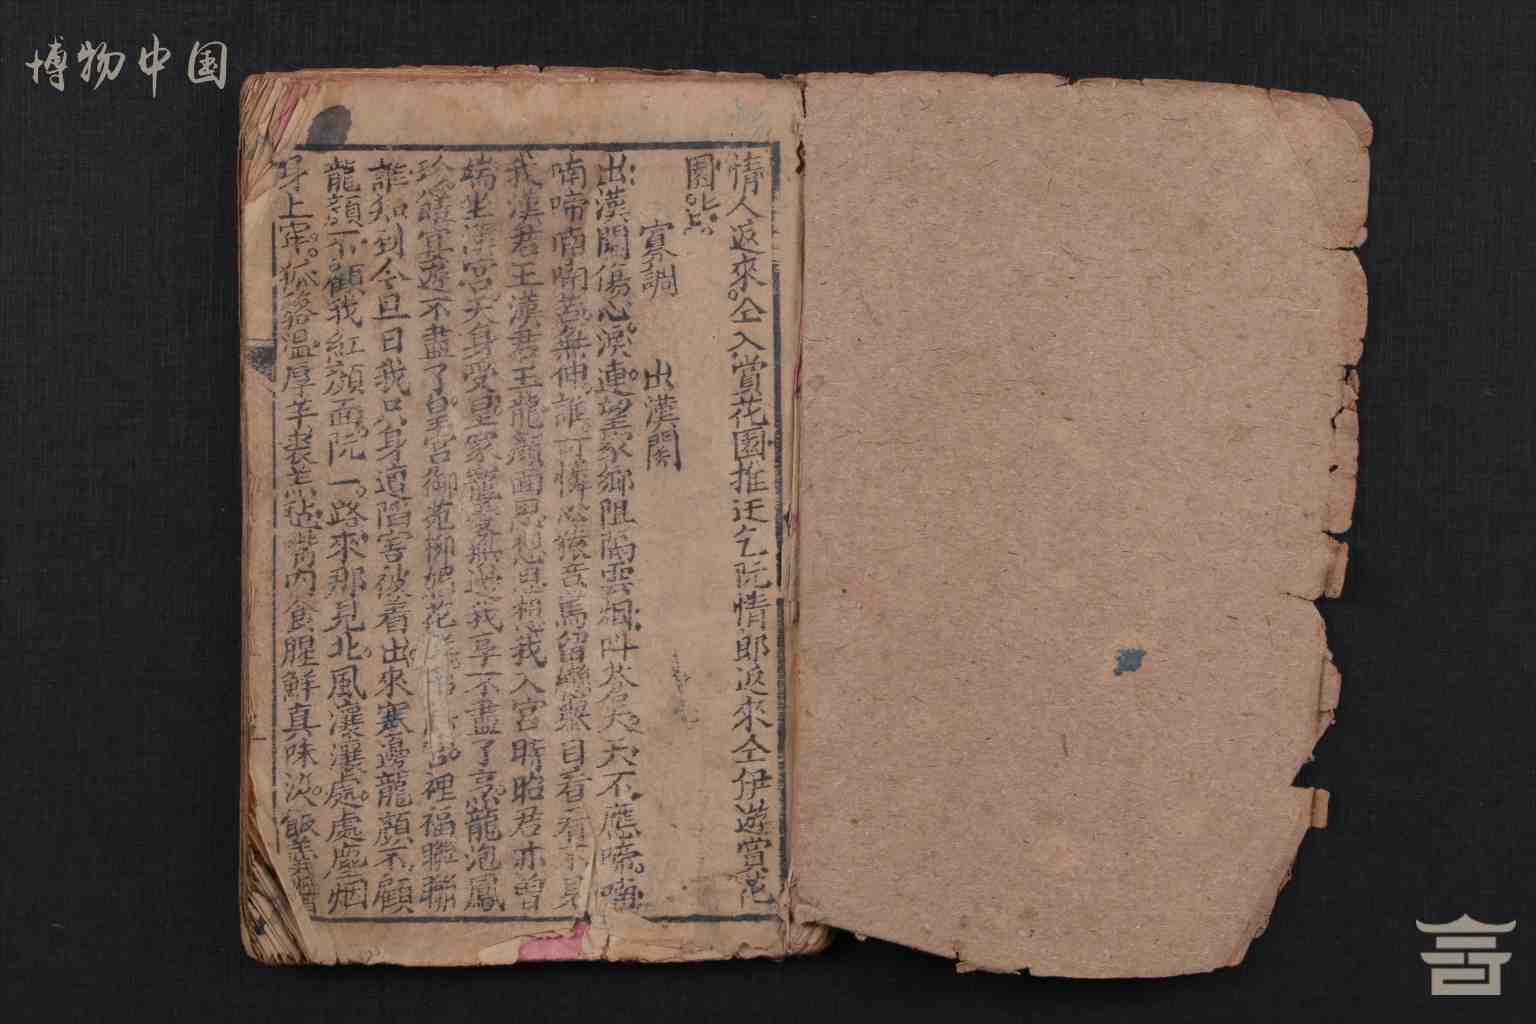 博物中国
情人返來仝入賞花園推迁乞阮情郎返來仝伊遊賞花
園
寡調 出漢關
出漢關傷心淚連望家鄉阻隔雲烟叫蒼天天不應啼喃
喃啼喃喃苦無伸誰可憐心猿意馬留戀眼目看看不見
我漢君王漢君王龍顏面思想思想我入宮時昭君亦曾
端坐深宮天身受皇家寵愛無邊我享不盡了烹龍泡鳳
珍饈宴遊不盡了皇宮御苑柳媚花 宮裡福聯聯
誰知到今旦日我只身遭陷害彼看出來塞邊龍顏不顧
龍顏不顧我紅顏面阮一路來那見北風瀼瀼處處塵烟
身上穿狐貉溫厚羊裘羔毡嘴內食腥鮮真味淡飯